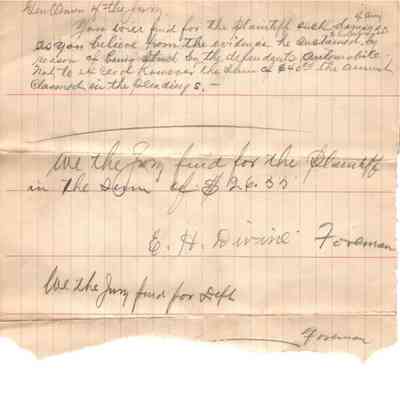 Gentlemen of the Jury
You will find for the Plaintiff such damages if any
as you believe from the evidence he sustained by
reason of being struck by the defendants automobile.
Not to exceed however the sum of $40.00 the amount
Claimed in the pleadings. —
We the Jury find for the Plaintiff
in the Sum of $ 26.35
E. H. Divine Foreman
We the Jury find for Deft
Foreman